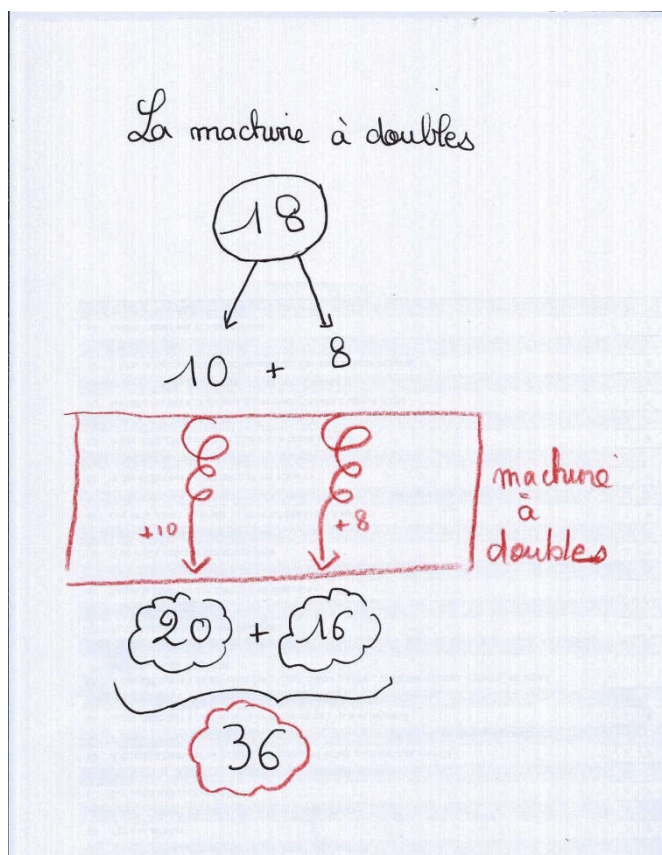 La machine à doubles
18
10 + 8
+10 +8
machine
à
doubles
20 + 16
36